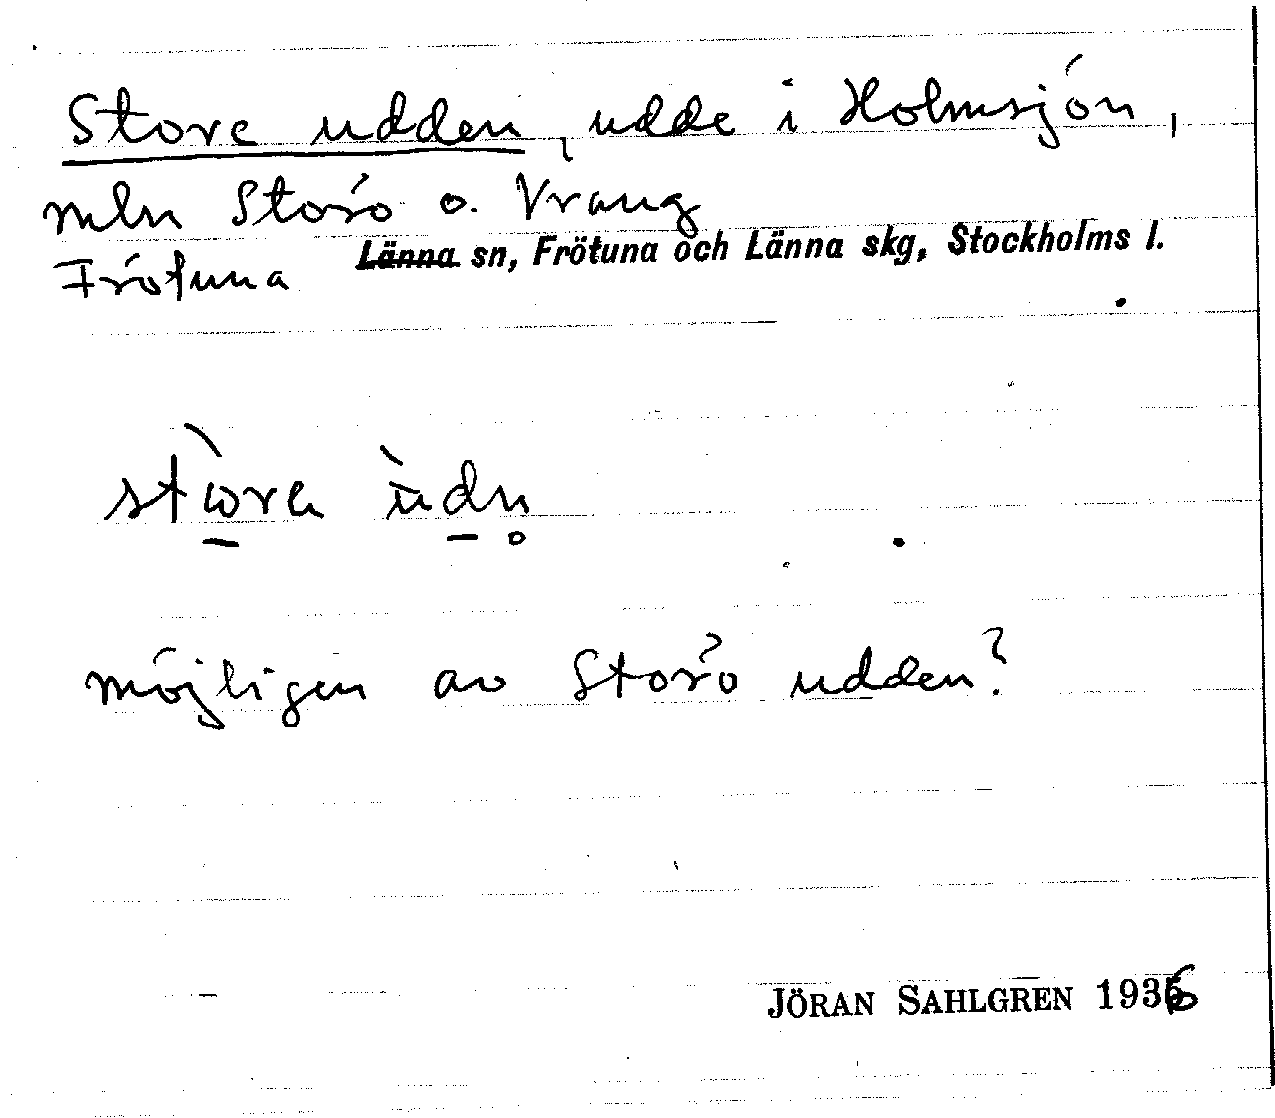 Store udden, udde i Holmsjön,
mln Storö o. Vrang
Länna sn, Frötuna och Länna skg, Stockholms l.
Frötuna
möjligen av Storö udden?
JÖRAN SAHLGREN 1936